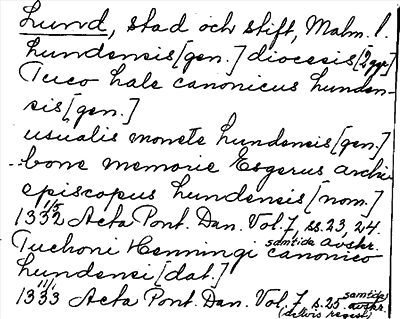 Lund, stad och stift, Malm. l.
Lundensis [gen.] diocesis [2 ggr]
Tuco hale canonicus Lunden-
sis [gen.]
usualis monete Lundensis [gen.]
bone memorie Esgerus archi-
episcopus Lundensis [nom.]
1332 1/5 Acta Pont. Dan. Vol. 7, ss. 23, 24.
samtida avskr.
Tuchoni Henningi canonico
Lundensi [dat.]
1333 11/1 Acta Pont. Dan. Vol. 7, s. 25 samtida avskr.
(delvis regest)